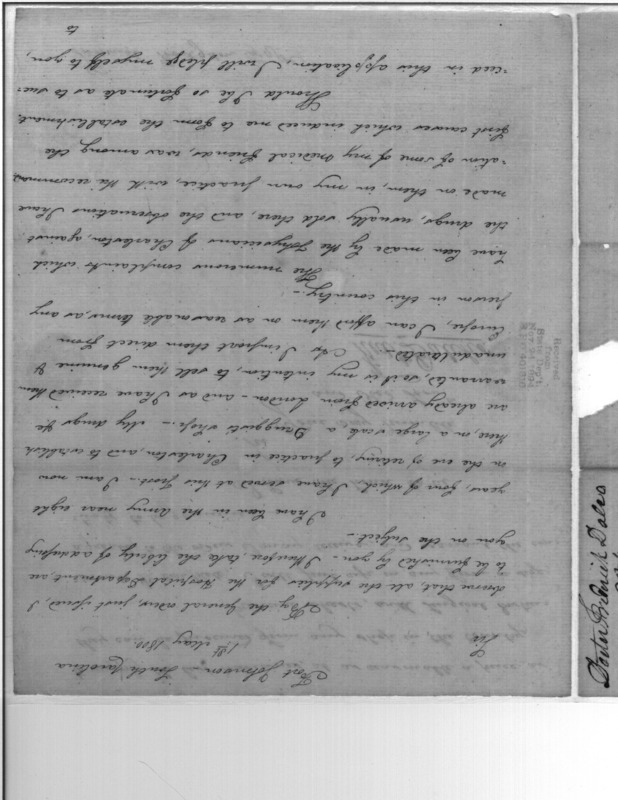 Fort Johnson – South Carolina
1st May 1800
Sir
By the General orders, just issued, I
observe that, all the supplies for the Hospital Department, are
to be furnished by you. – I therefore, take the liberty of addressing
you on the subject –
I have been in the Army near eight
years, four of which, I have served at this post – I am now
on the eve of retiring, to practice in Charleston, and to establish
there, on a large scale a Druggist's Shop – My drugs &c
are already arrived from London – and as I have received them
warranted, so it is my intention, to sell them genuine &
unadulterated. As I import them direct from
Europe, I can afford them on as reasonable terms, as any
person in this country. –
The numerous complaints which
have been made by the Physicians of Charleston, against
the drugs, usually sold there, and the observations I have
made on them, in my own practice, with the recommend
ation of some of my medical friends, was among the
first causes which induced me to form the establishment.
Should I be so fortunate as to suc-
-ceed in this application, I will pledge myself to you,
to
Doctor Frederick Dalcho
Received